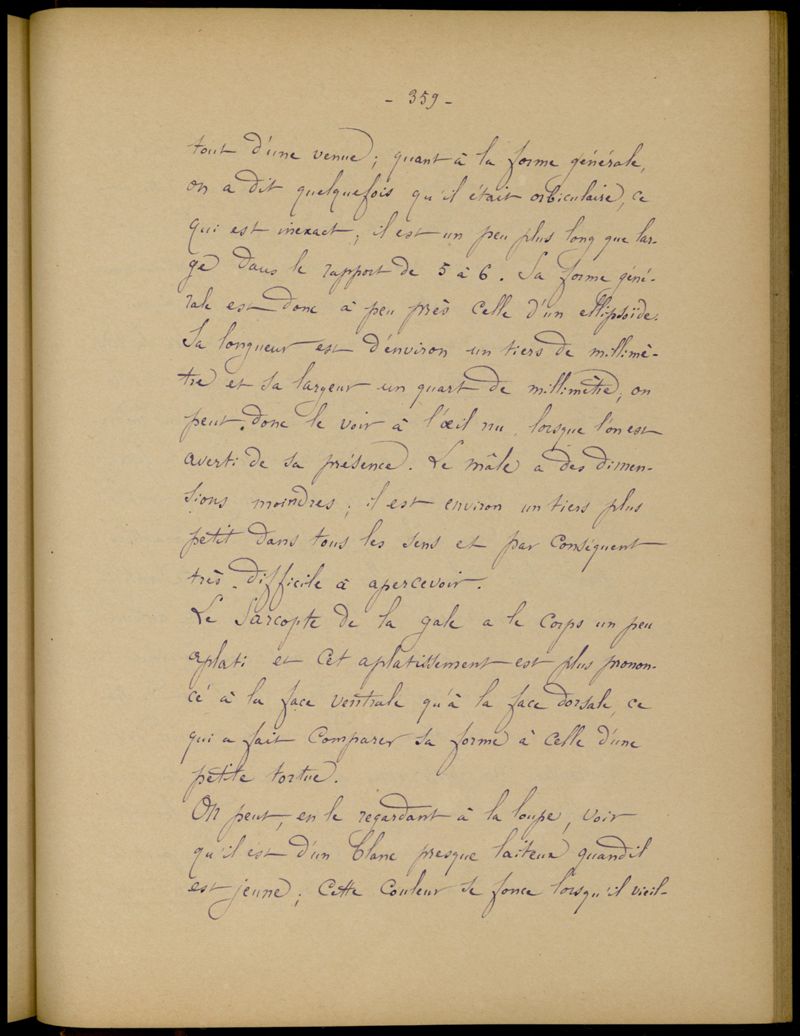 - 359 -
tout d'une venue; quant à la forme générale,
on a dit quelquefois qu'il était orbiculaire, ce
qui est inexact; il est un peu plus long que lar-
ge dans le rapport de 5 à 6. Sa forme géné-
rale est donc à peu près celle d'un ellipsoïde.
Sa longueur est d'environ un tiers de millimè-
tre et sa largeur un quart de millimètre; on
peut donc le voir à l'œil nu, lorsque l'on est
averti de sa présence. Le mâle a des dimen-
sions moindres; il est environ un tiers plus
petit dans tous les sens et par conséquent
très difficile à apercevoir.
Le Sarcopte de la gale a le corps un peu
aplati et cet aplatissement est plus pronon-
cé à la face ventrale qu'à la face dorsale, ce
qui a fait comparer sa forme à celle d'une
petite tortue.
On peut, en le regardant à la loupe, voir
qu'il est d'un blanc presque laiteux quand il
est jeune; cette couleur se fonce lorsqu'il vieil-